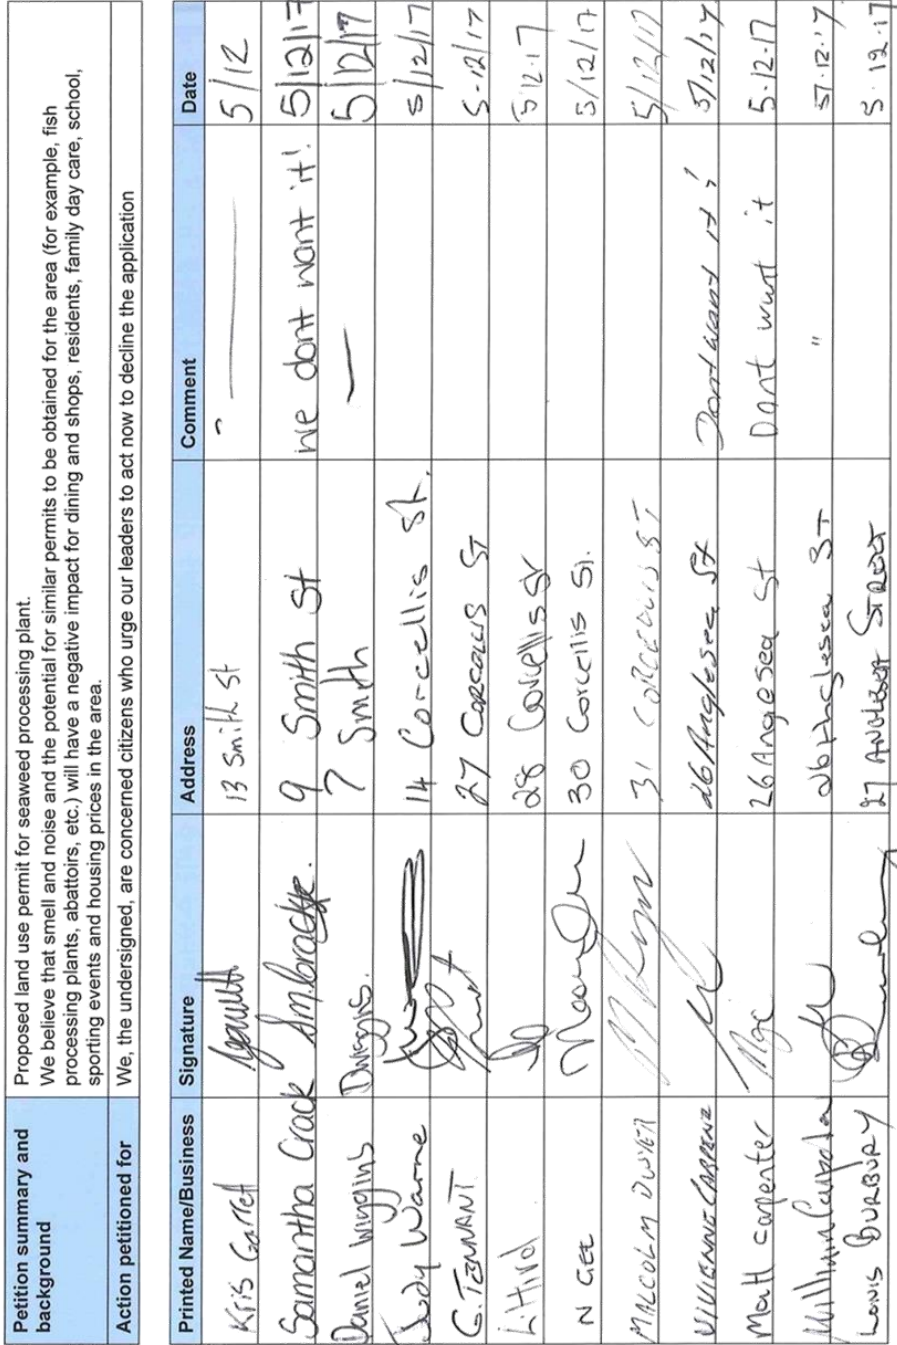 Petition summary and
background
Proposed land use permit for seaweed processing plant.
We believe that smell and noise and the potential for similar permits to be obtained for the area (for example, fish
processing plants, abattoirs, etc.) will have a negative impact for dining and shops, residents, family day care, school,
sporting events and housing prices in the area.
Action petitioned for
We, the undersigned, are concerned citizens who urge our leaders to act now to decline the application
Printed Name/Business Signature Address Comment Date
Kris 13 Smith St 5/12
Samantha Crack 9 Smith St We dont want it! 5/12/17
Daniel Wiggins DWiggins. 7 Smith — 5/12/17
Judy Warne 14 Corcellis St. 5/12/17
G. TENNANT 27 CORCELLIS ST 5-12/17
L Hird 28 Corcellis St 5.12.17
N GEE 30 Corcellis St. 5/12/17
MALCOLM DWYER 31 CORCELLIS ST 5/12/17
VIVIENNE 26 Anglesea St Dont want it! 5/12/17
Matt carpenter 26 Angesea St Dont want it 5.12.17
William 26 Anglesea ST " 5.12.17
LOUIS BURBURY 27 STREET 5.12.17